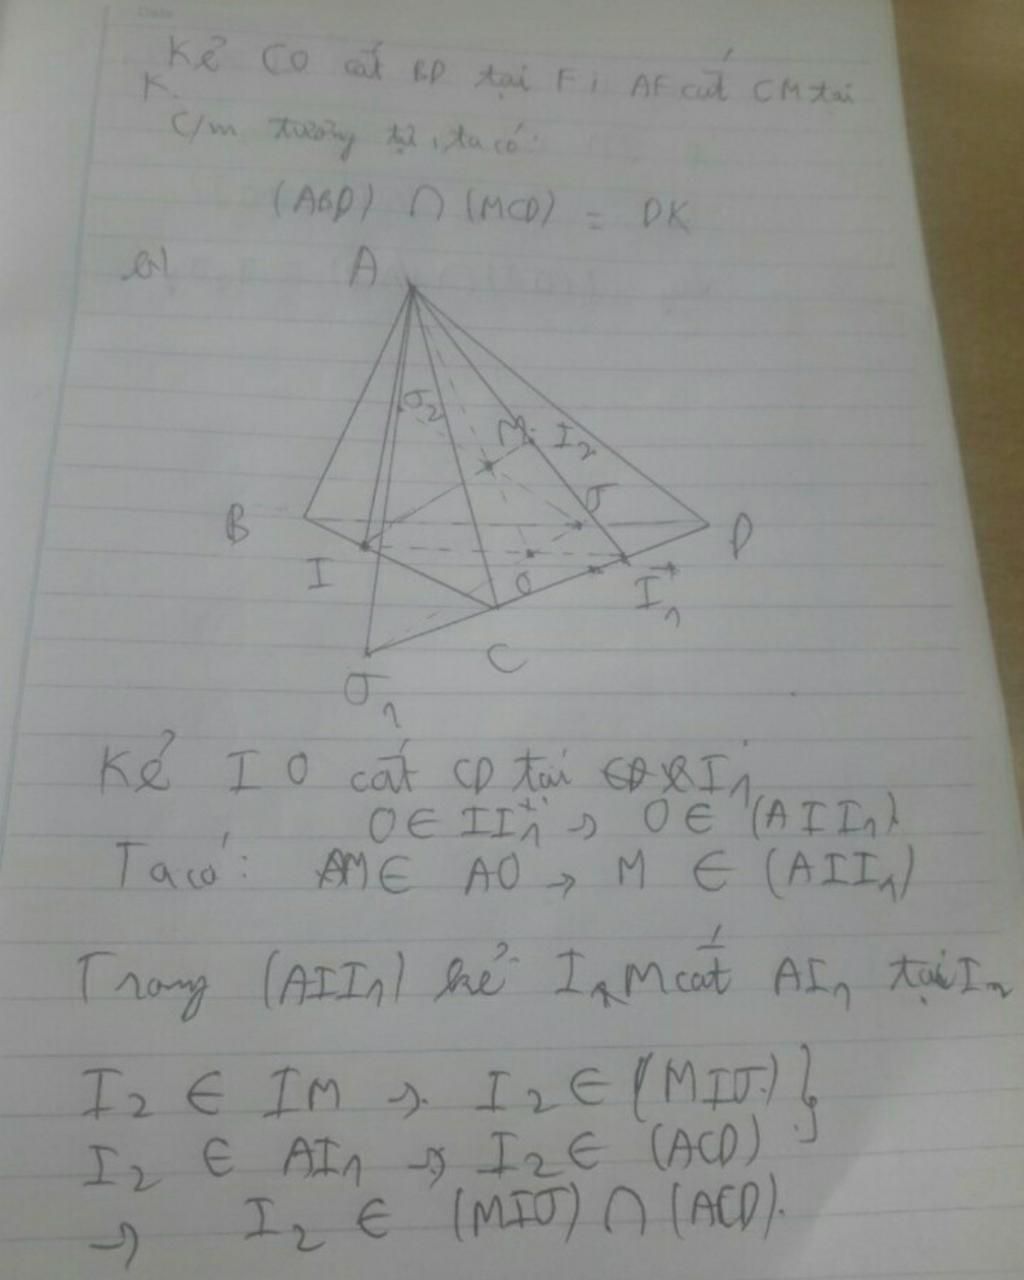 Date
Kẻ CO cắt BD tại F; AF cắt CM tại
K.
C/m tương tự, ta có:
(ABD) ∩ (MCD) = DK
A
J₂
M I₂
B J D
I O I₁
C
J₁
Kẻ IO cắt CD tại I₁
O ∈ II₁ → O ∈ (AII₁)
Ta có: AM ∈ AO → M ∈ (AII₁)
Trong (AII₁) kẻ IM cắt AI₁ tại I₂
I₂ ∈ IM → I₂ ∈ (MIJ) }
I₂ ∈ AI₁ → I₂ ∈ (ACD)
→ I₂ ∈ (MIJ) ∩ (ACD).